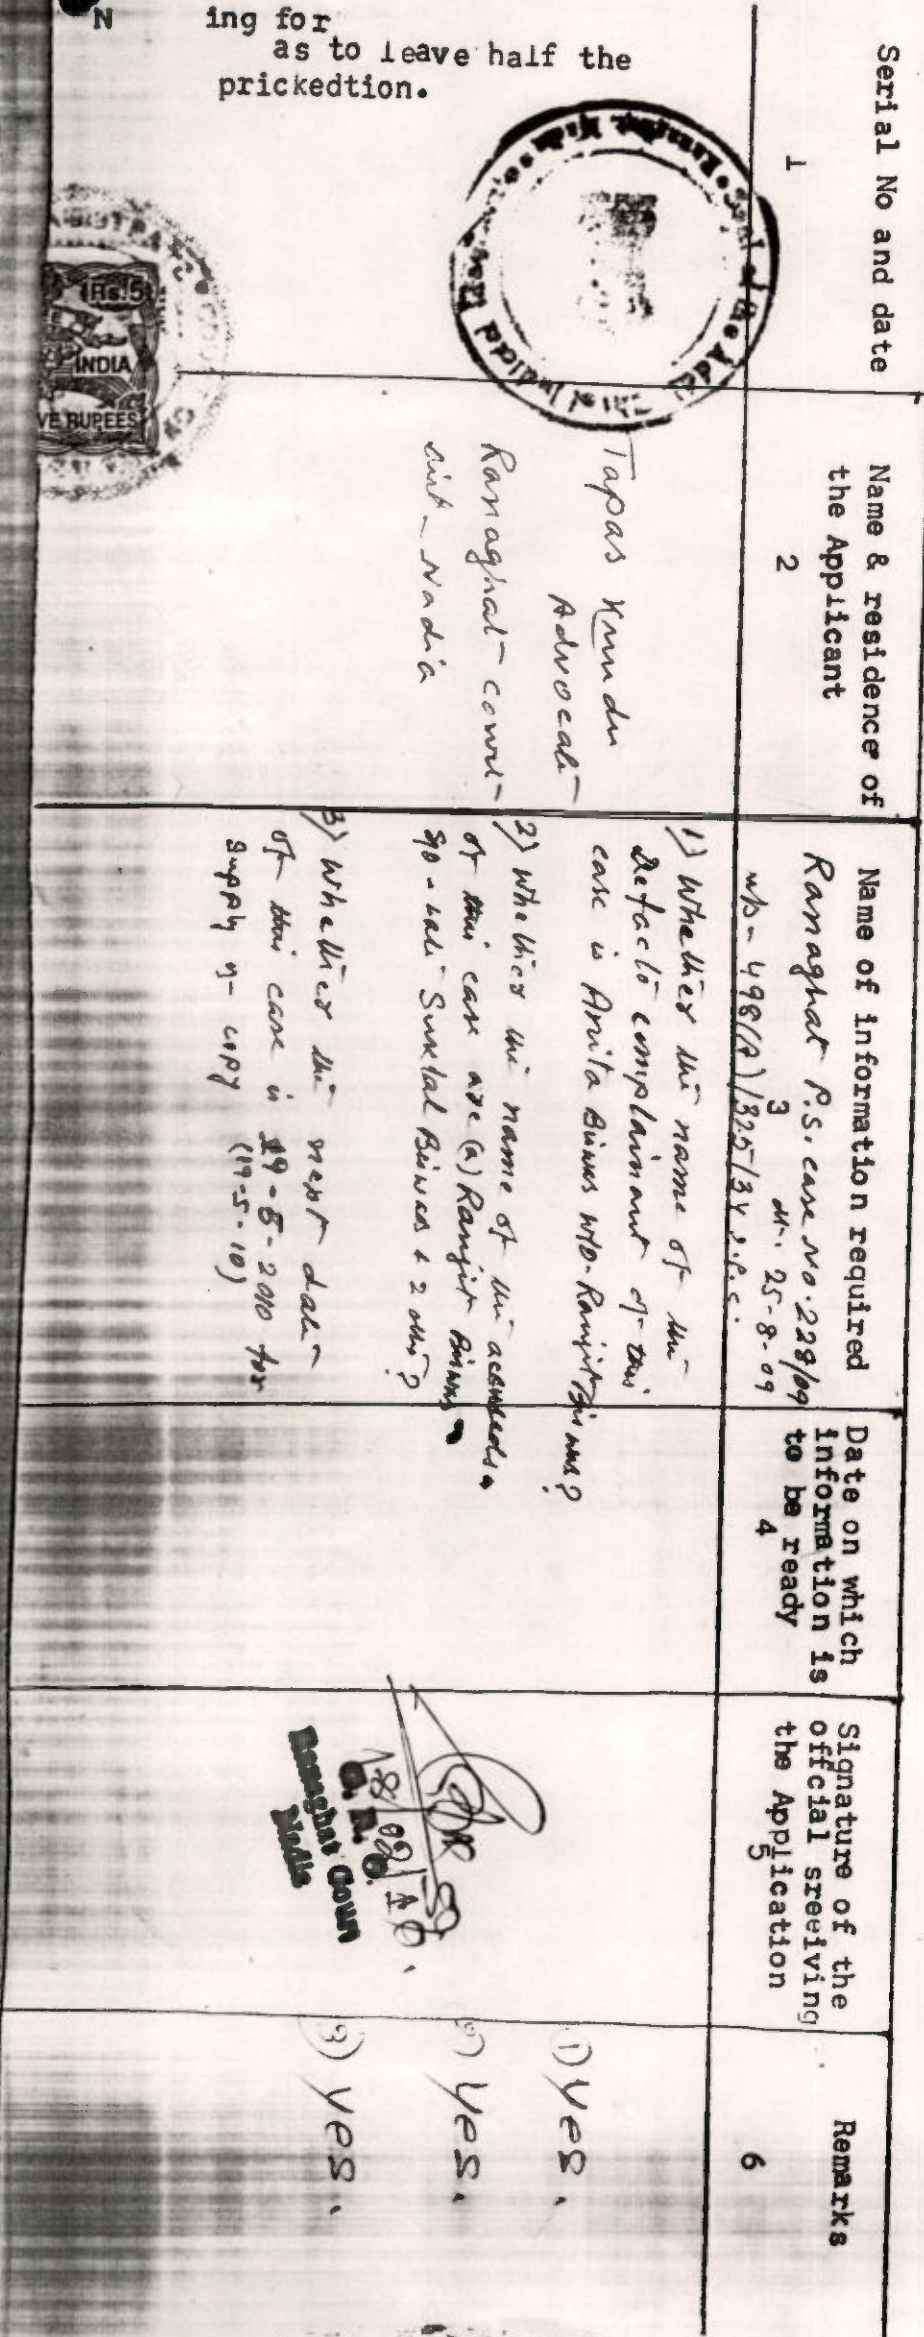 N
ing for
as to leave half the
prickedtion.
Serial No and date
1
Name & residence of
the Applicant
2
Name of information required
3
Date on which
information is
to be ready
4
Signature of the
offcial sreeiving
the Application
5
Remarks
6
Rs.5
INDIA
VE RUPEES
Tapas Kundu
Advocate
Ranaghat court
Dist- Nadia
Ranaghat P.S. case No. 228/09
dt. 25-8-09
u/s- 498(A)/325/34 I.P.C.
1) Whether the name of the
Defacto complainant of this
case is Anita Biswas W/O. Ranjit Biswas?
2) Whether the name of the accuseds
of this case are (a) Ranjit Biswas
S/o- Late Suklal Biswas & 2 others?
3) Whether the next date
of this case is 19-5-2010 for
supply of copy (19-5-10)
18/02/10
G. R. O.
Ranaghat Court
Nadia
1) Yes.
2) Yes.
3) Yes.